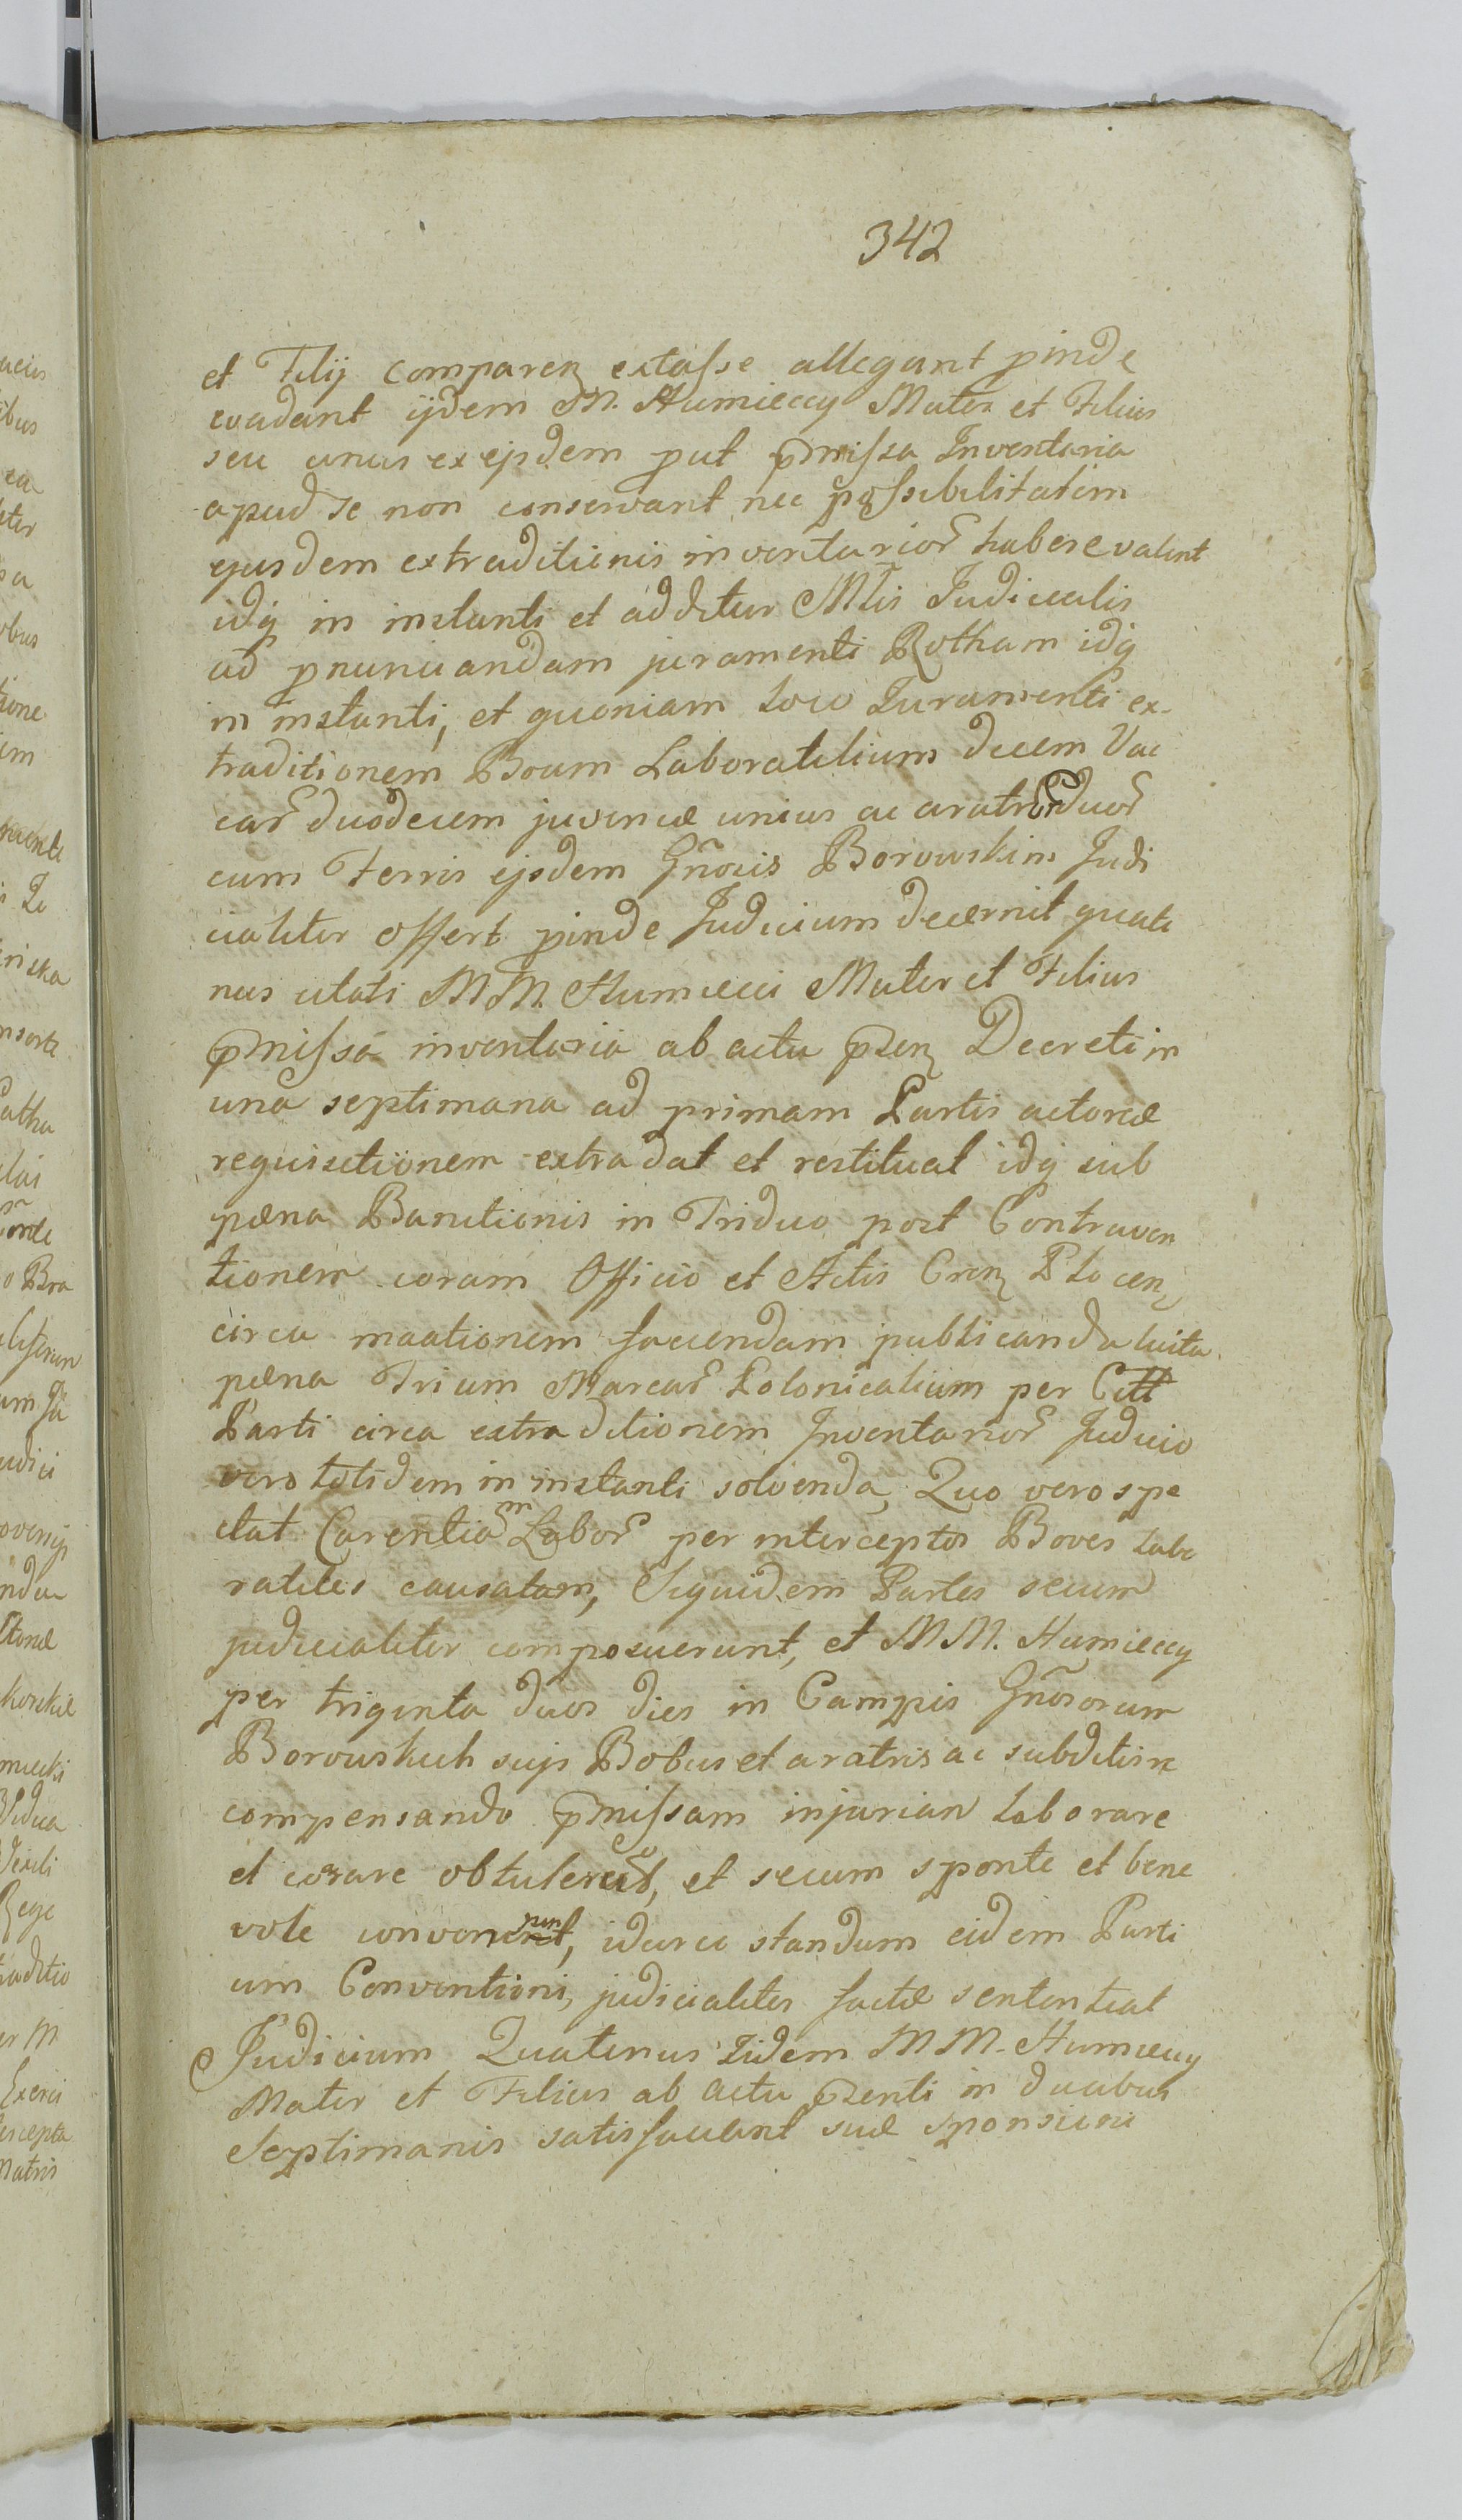 342
et Filij comparen extasse allegant pinde
evadant ijdem M. Humieccy Mater et Filius
seu unus ex ejsdem put pmissa Inventaria
apud se non conservant nec possibilitatem
ejusdem extraditionis inventarior habere valent
idq in instanti et additur Mtis Judicialis
ad pnunciandam juramenti Rotham idq
in instanti, et quoniam loco Juramenti ex-
traditionem Boum Laboratilium decem Vac
car duodecem juvencæ unius ac aratror duor
cum Ferris ejsdem Gñosis Borowskim Judi
cialiter offert pinde Judicium decernit quate
nus citati MM. Humiecci Mater et Filius
pmissa inventaria ab actu psen Decreti in
una septimana ad primam Partis actoreæ
requisitionem extradat et restituat idq sub
pæna Banitionis in Triduo post Contraven
tionem coram Officio et Actis Cren Plocen
circa maationem faciendam publicanda luita
pæna Trium Marcar Polonicalium per Citt
Parti circa extraditionem Inventarior Judicio
vero totidem in instanti solvenda, Quo vero spe
ctat Carentiam Labor per interceptos Boves labo
ratiles causatam, Siquidem Partes secum
judicialiter composuerunt, et MM. Humieccy
per triginta duos dies in Campis Gñosorum
Borowskich sujs Bobus et aratris ac subditis
compensando pmissam injuriam laborare
et arare obtulerut, et secum sponte et bene
vole convenerunt, idcirco standum eidem Parti
um Conventioni, judicialiter factæ sententiat
Judicium Quatenus Iidem MM. Humieccy
Mater et Filius ab actu psenti in duabus
Septimanis satisfaciant suæ sponsioni